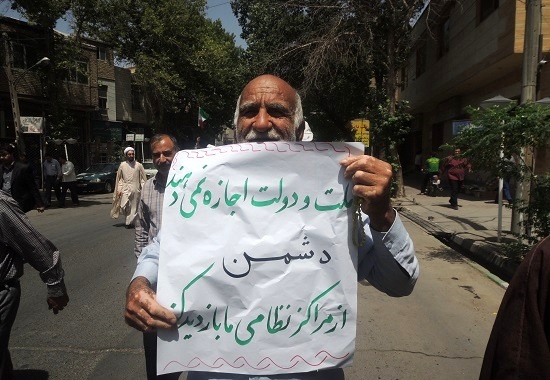 ملت و دولت اجازه نمی دهند
دشمن
از مراکز نظامی ما بازدید کند